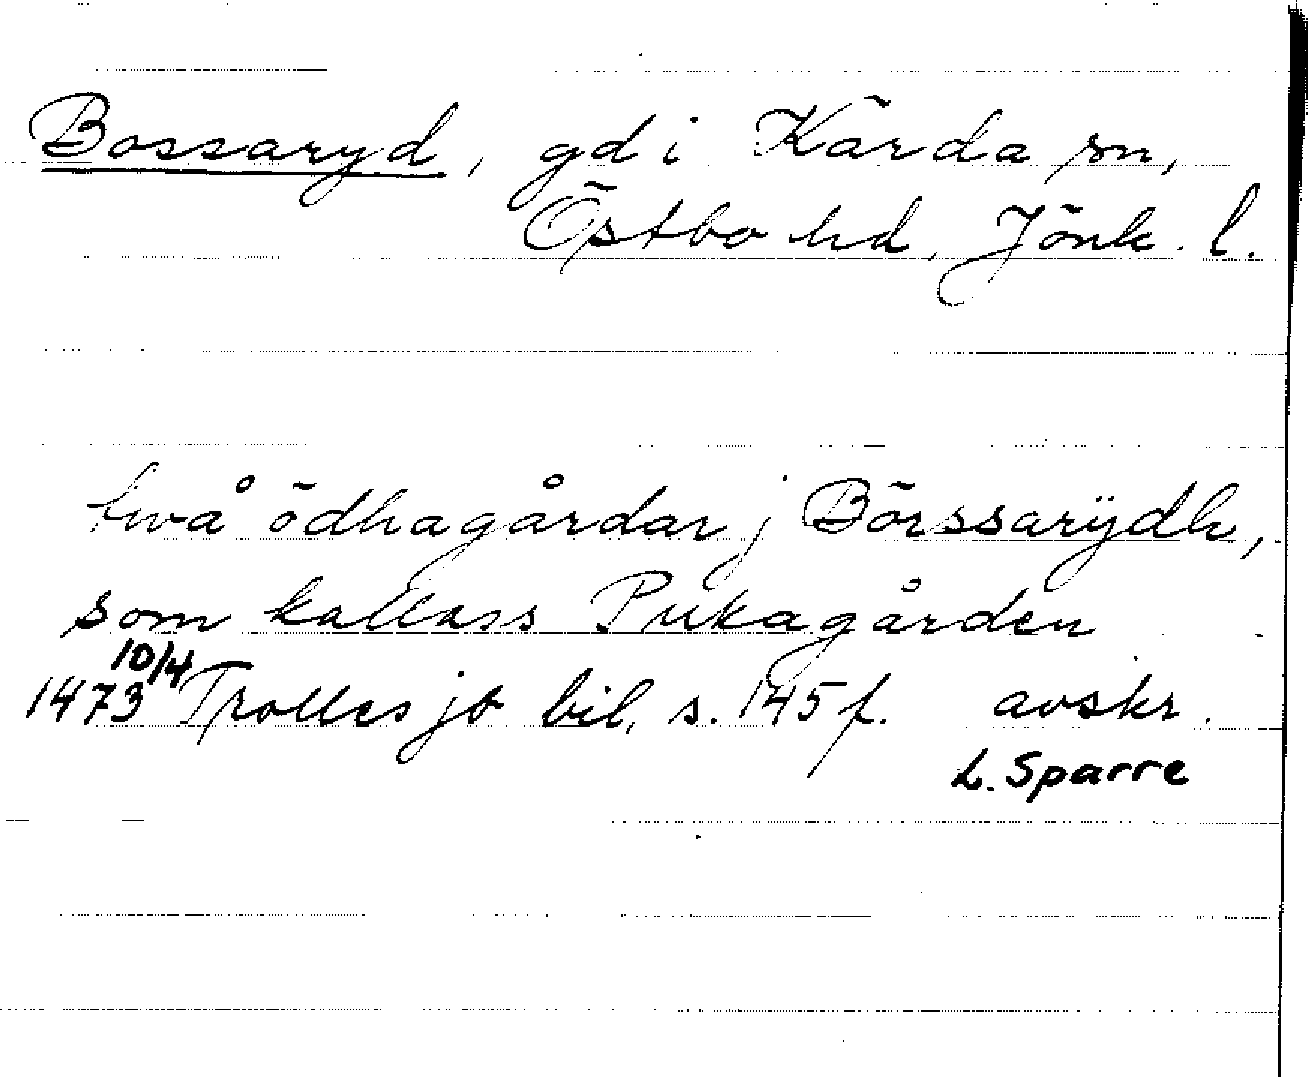 Bossaryd, gd i Kärda sn,
Östbo hd, Jönk. l.
twå ödhagårdar j Börssarÿdh,
som kallass Pukagården
1473 10/4 Trolles jb bil, s. 145 f. avskr.
L. Sparre